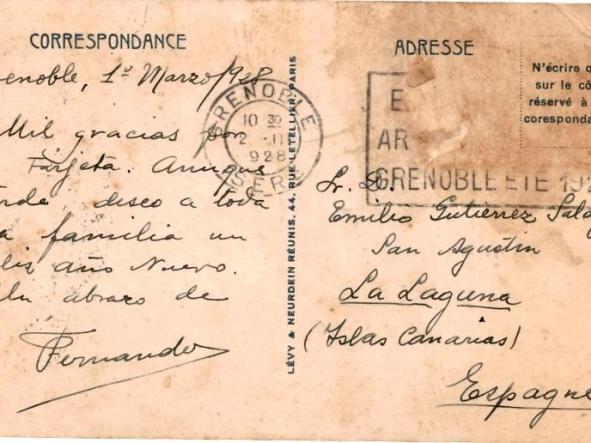 CORRESPONDANCE
enoble, 1º Marzo/928
Mil gracias por
Tarjeta. Aunque
rde, deseo a toda
a familia un
liz año Nuevo.
Un abrazo de
Fernando
GRENOBLE
10 30
2 - II
928
ISERE
LÉVY & NEURDEIN RÉUNIS, 44, RUE LETELLIER, PARIS
ADRESSE
N'écrire q
sur le cô
réservé à
corresponda
E
AR
GRENOBLE ETE 192
Sr. D.
Emilio Gutiérrez Sala
San Agustín
La Laguna
(Islas Canarias)
Espagne